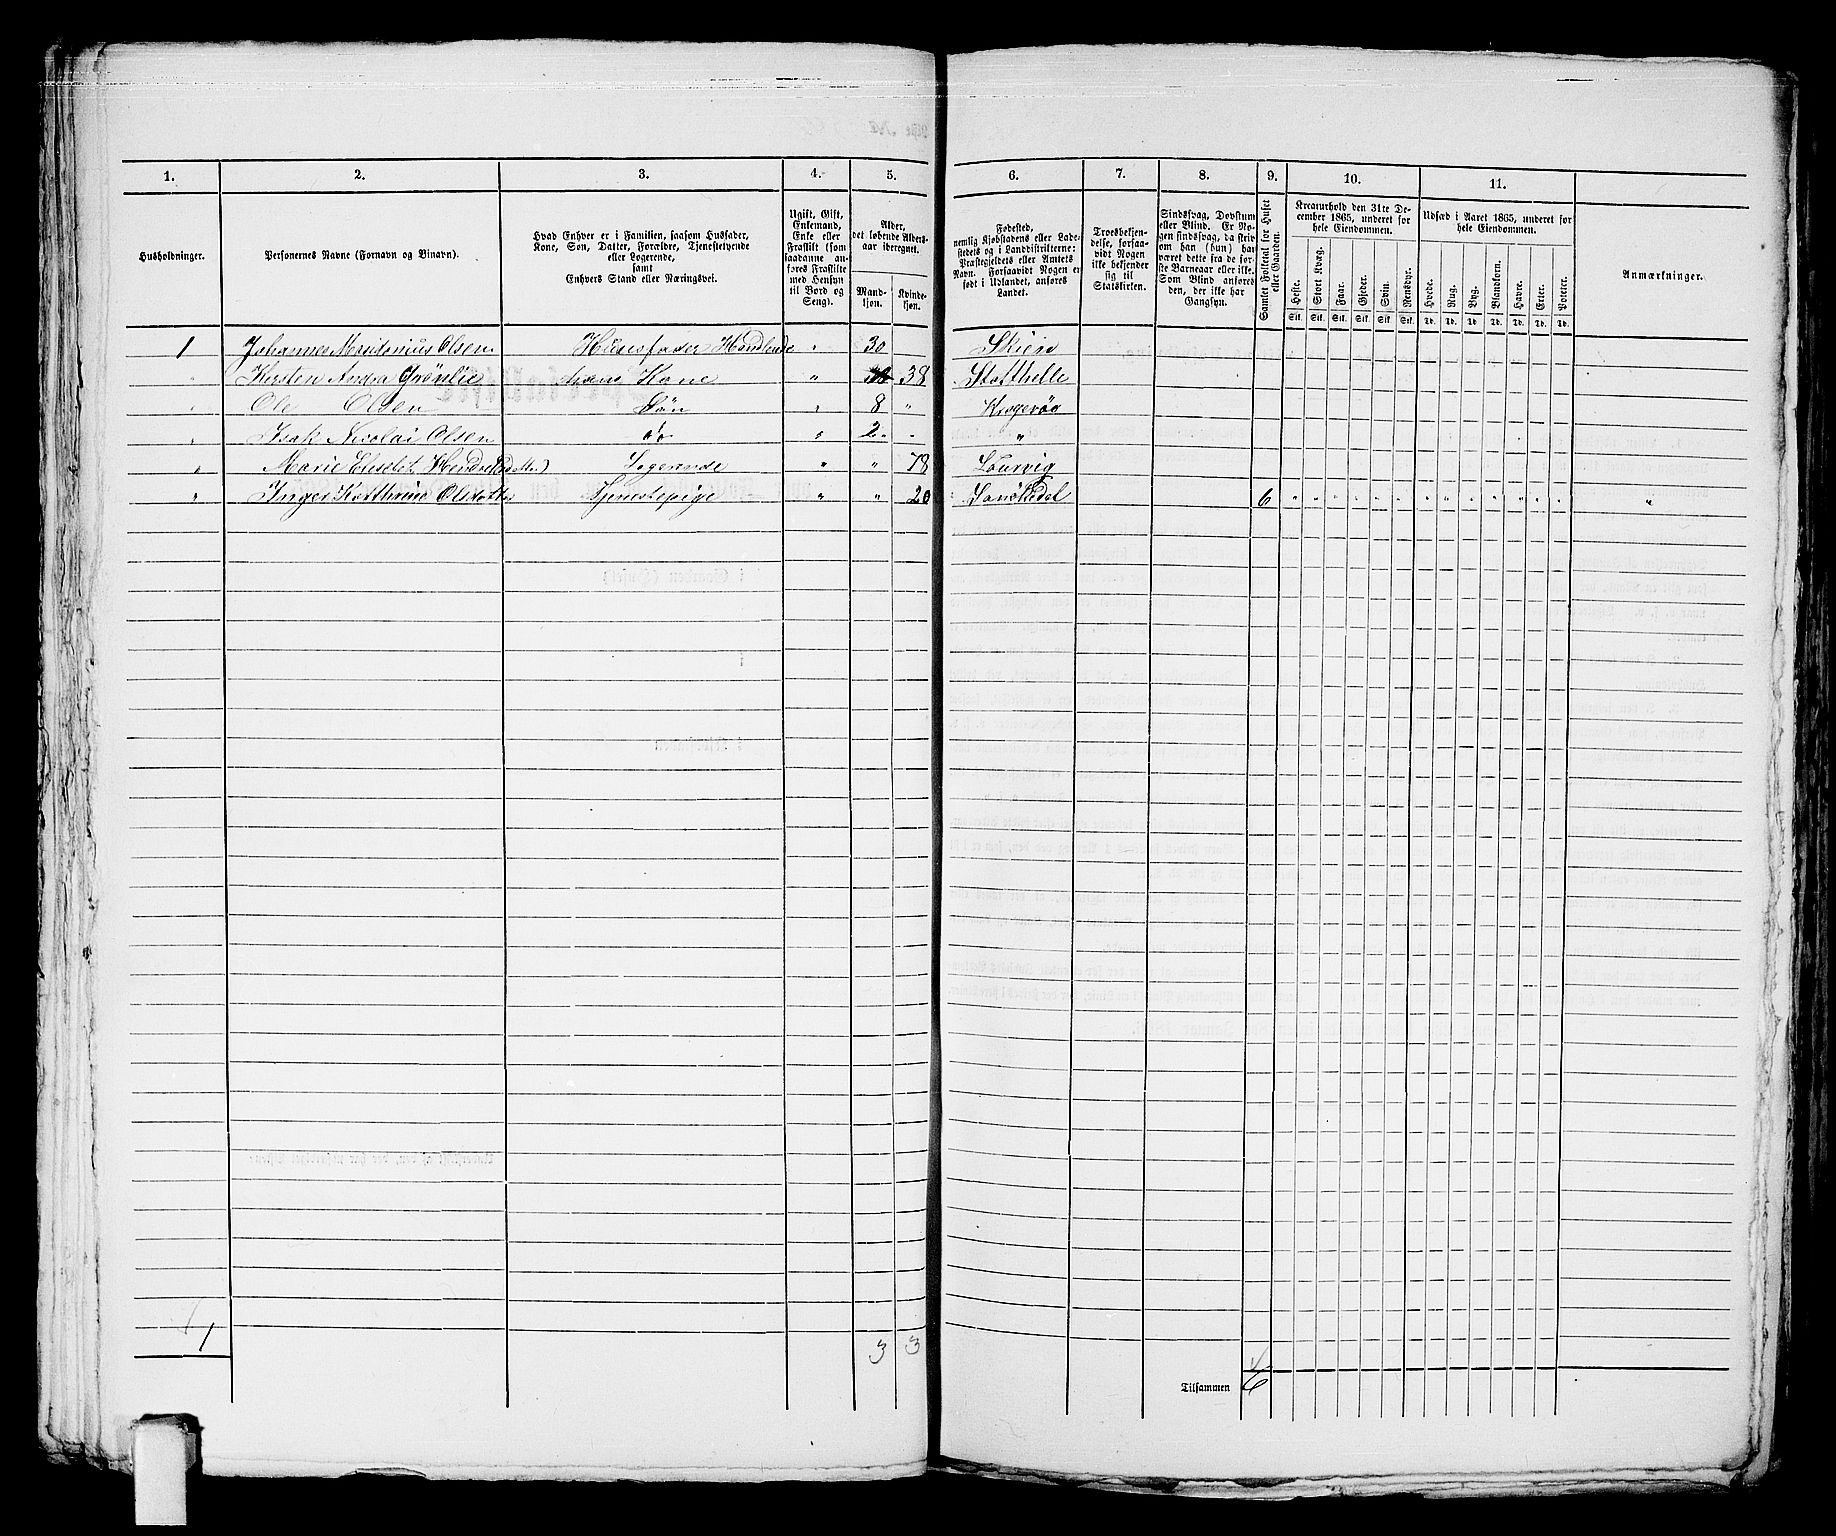 1. 2. 3. 4. 5. 6. 7. 8. 9. 10. 11.
Husholdninger.
Personernes Navne (Fornavn og Binavn).
Hvad Enhver er i Familien, saasom Husfader,
Kone, Søn, Datter, Forældre, Tjenestetyende
eller Logerende,
samt
Enhvers Stand eller Næringsvei.
Ugift, Gift,
Enkemand,
Enke eller
Fraskilt (som
saadanne an-
føres Fraskilte
med Hensyn
til Bord og
Seng).
Alder,
det løbende Alders-
aar iberegnet.
Mand-
kjøn.
Kvinde-
kjøn.
Fødested,
nemlig Kjøbstadens eller Lade-
stedets og i Landdistrikterne:
Præstegjeldets eller Amtets
Navn. Forsaavidt Nogen er
født i Udlandet, anføres
Landet.
Troesbekjen-
delse, forsaa-
vidt Nogen
ikke bekjender
sig til
Statskirken.
Sindssvag, Døvstum
eller Blind. Er No-
gen sindssvag, da skriv
om han (hun) har
været dette fra de før-
ste Barneaar eller ikke.
Som Blind anføres
den, der ikke har
Gangsyn.
Samlet Folketal for Huset
eller Gaarden.
Kreaturhold den 31te De-
cember 1865, underet for
hele Eiendommen.
Heste. Stort Kvæg. Faar. Gjeder. Svin. Rensdyr.
Stk. Stk. Stk. Stk. Stk. Stk.
Udsæd i Aaret 1865, underet for
hele Eiendommen.
Hvede. Rug. Byg. Blandkorn. Havre. Erter. Poteter.
Td. Td. Td. Td. Td. Td. Td.
Anmærkninger.
1 Johannes Olsen Huusfader Handlende " 30 Skien
" Kersten Andra Grönlie hans Kone " 38 Statthelle
" Ole Olsen Søn " 8 " Kragerøe
" Isak Nicolai Olsen do " 2 " "
" Marie Elisabet Logerende " " 78 Laurvig
" Inger Katthrine Olsdatter Tjenestepige " " 20 Sanökedal 6 " " " " " " " " " " " " " "
1 3 3
Tilsammen 6